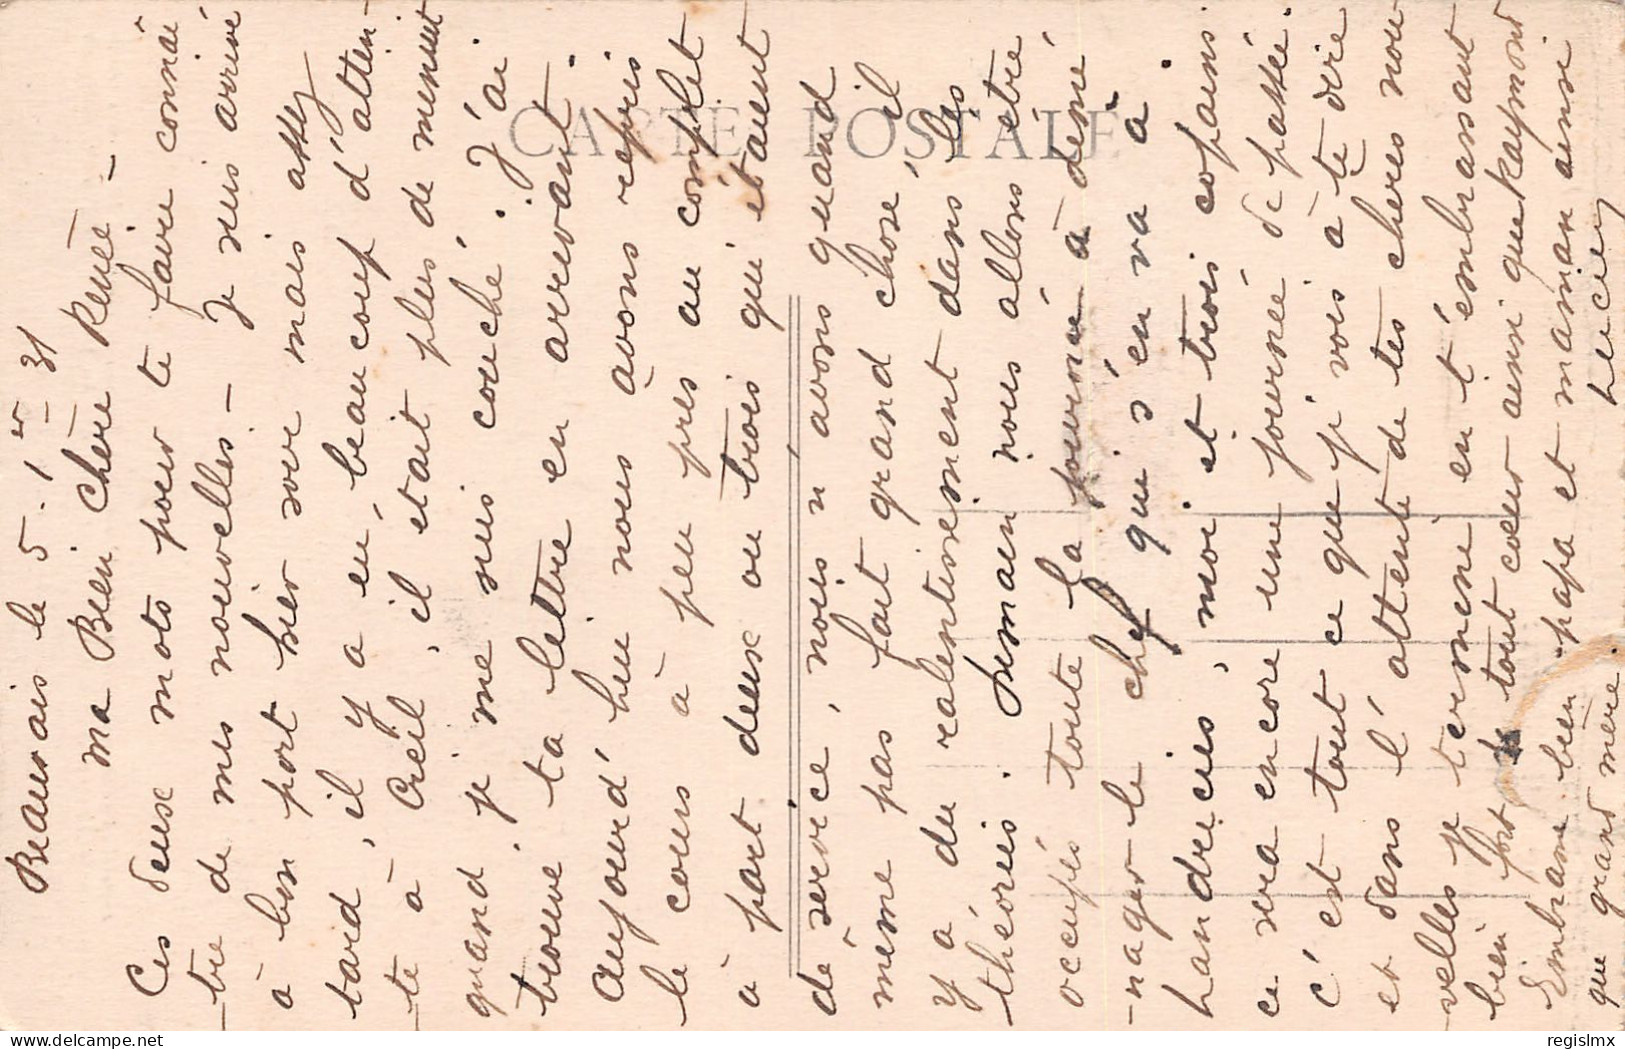 Beauvais le 5. 1er 31
Ma Bien Chère Renée -
Ces deux mots pour te faire connaî
-tre de mes nouvelles - Je suis arrivé
à bon port hier soir mais assez
tard, il y a eu beaucoup d'atten-
-te à Creil, il était plus de menuit
quand je me suis couché. J'ai
trouvé ta lettre en arrivant.
Aujourd'hui nous avons repris
le cours à peu près au complet
à part deux ou trois qui étaient
de service, nous n'avons quand
même pas fait grand chose, il
y a du ralentisement dans les
théories. Demain nous allons être
occupés toute la journé à démé
-nager le chef qui s'en va à
Landrecies, moi et trois copains
ce sera encore une journée de passée.
C'est tout ce que j'vois à te dire
et dans l'attente de tes chères nou
-velles je termine en t'embrassant
bien fort de tout coeur ainsi que Raymond
Embrasse bien papa et maman ainsi
que grand mère. Lucien
CARTE POSTALE
delcampe.net
regislmx